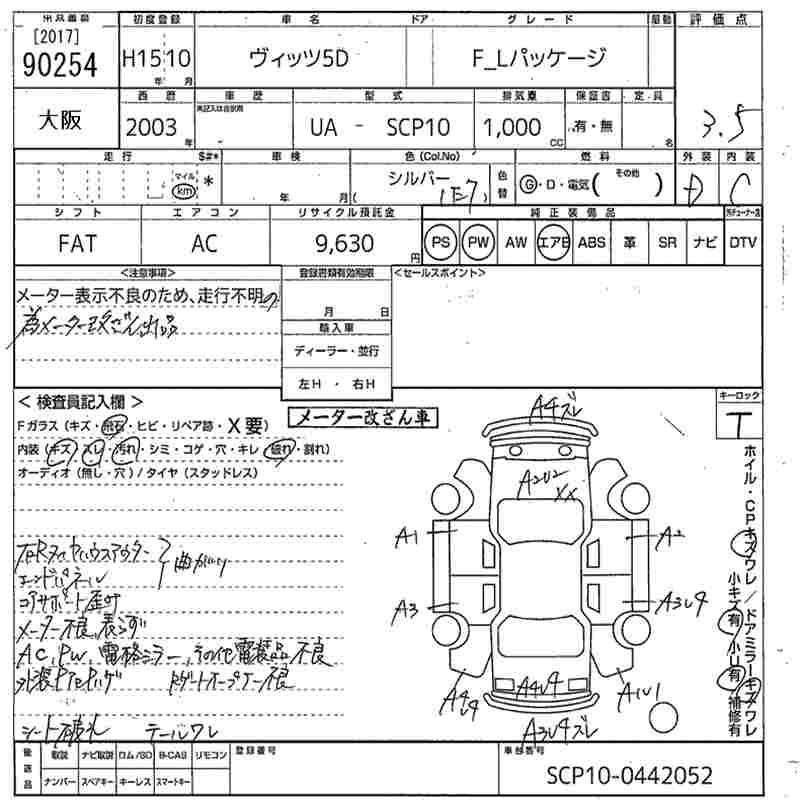 出品番号 初度登録 車名 ドア グレード 駆動 評価点
[2017]
90254 H15 10 ヴィッツ5D F_Lパッケージ
年 月
西暦 車歴 型式 排気量 保証書 定員
大阪 2003 年 UA - SCP10 1,000 CC 有・無 名 3.5
走行 $#* 車検 色(Col.No) 燃料 外装 内装
マイル km * 年 月 シルバー (1E7) 色替 G・D・電気( その他 ) D C
シフト エアコン リサイクル預託金 純正装備品
FAT AC 9,630 円 PS PW AW エアB ABS 革 SR ナビ DTV
<注意事項> 登録書類有効期限 <セールスポイント>
メーター表示不良のため、走行不明の
為メーター改ざん出品
月 日
輸入車
ディーラー・並行
左H ・ 右H
< 検査員記入欄 > メーター改ざん車 キーロック
Fガラス (キズ・飛石・ヒビ・リペア跡・X要) T
内装 (キズ・スレ・汚れ・シミ・コゲ・穴・キレ・破れ・割れ)
オーディオ (無し・穴) / タイヤ (スタッドレス)
A4ズレ
A2U2
XX
A1 A2
A3 A3U4
A4U4
A1U1
A3U4ズレ
ホイル・CPキズワレ/ドアミラーキズワレ
小キズ有 小U有 補修有
右Rタイヤハウスアウター
エンドパネル 曲がり
コアサポート歪み
メーター不良、表示ず
AC、PW、電格ミラー、その他電装品不良
シート破れ テールワレ
後送品 取説 ナビ取説 ロム/SD B-CAS リモコン 登録番号 車台番号
ナンバー スペアキー キーレス スマートキー SCP10-0442052